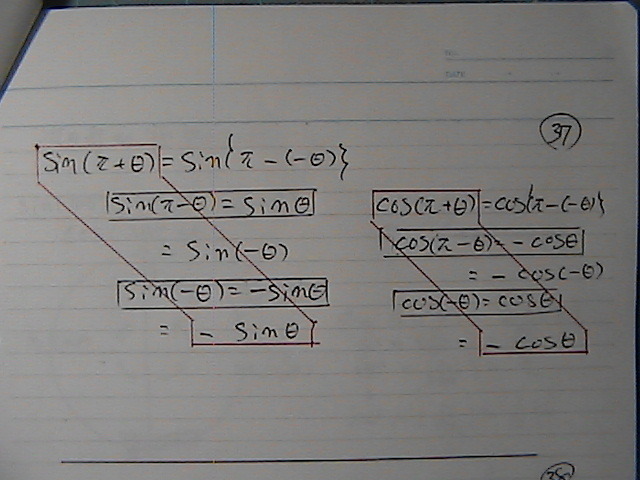 NO.
DATE
37
sin(π+θ) = sin{π-(-θ)}
sin(π-θ) = sinθ
= sin(-θ)
sin(-θ) = -sinθ
= - sinθ
cos(π+θ) = cos{π-(-θ)}
cos(π-θ) = - cosθ
= - cos(-θ)
cos(-θ) = cosθ
= - cosθ